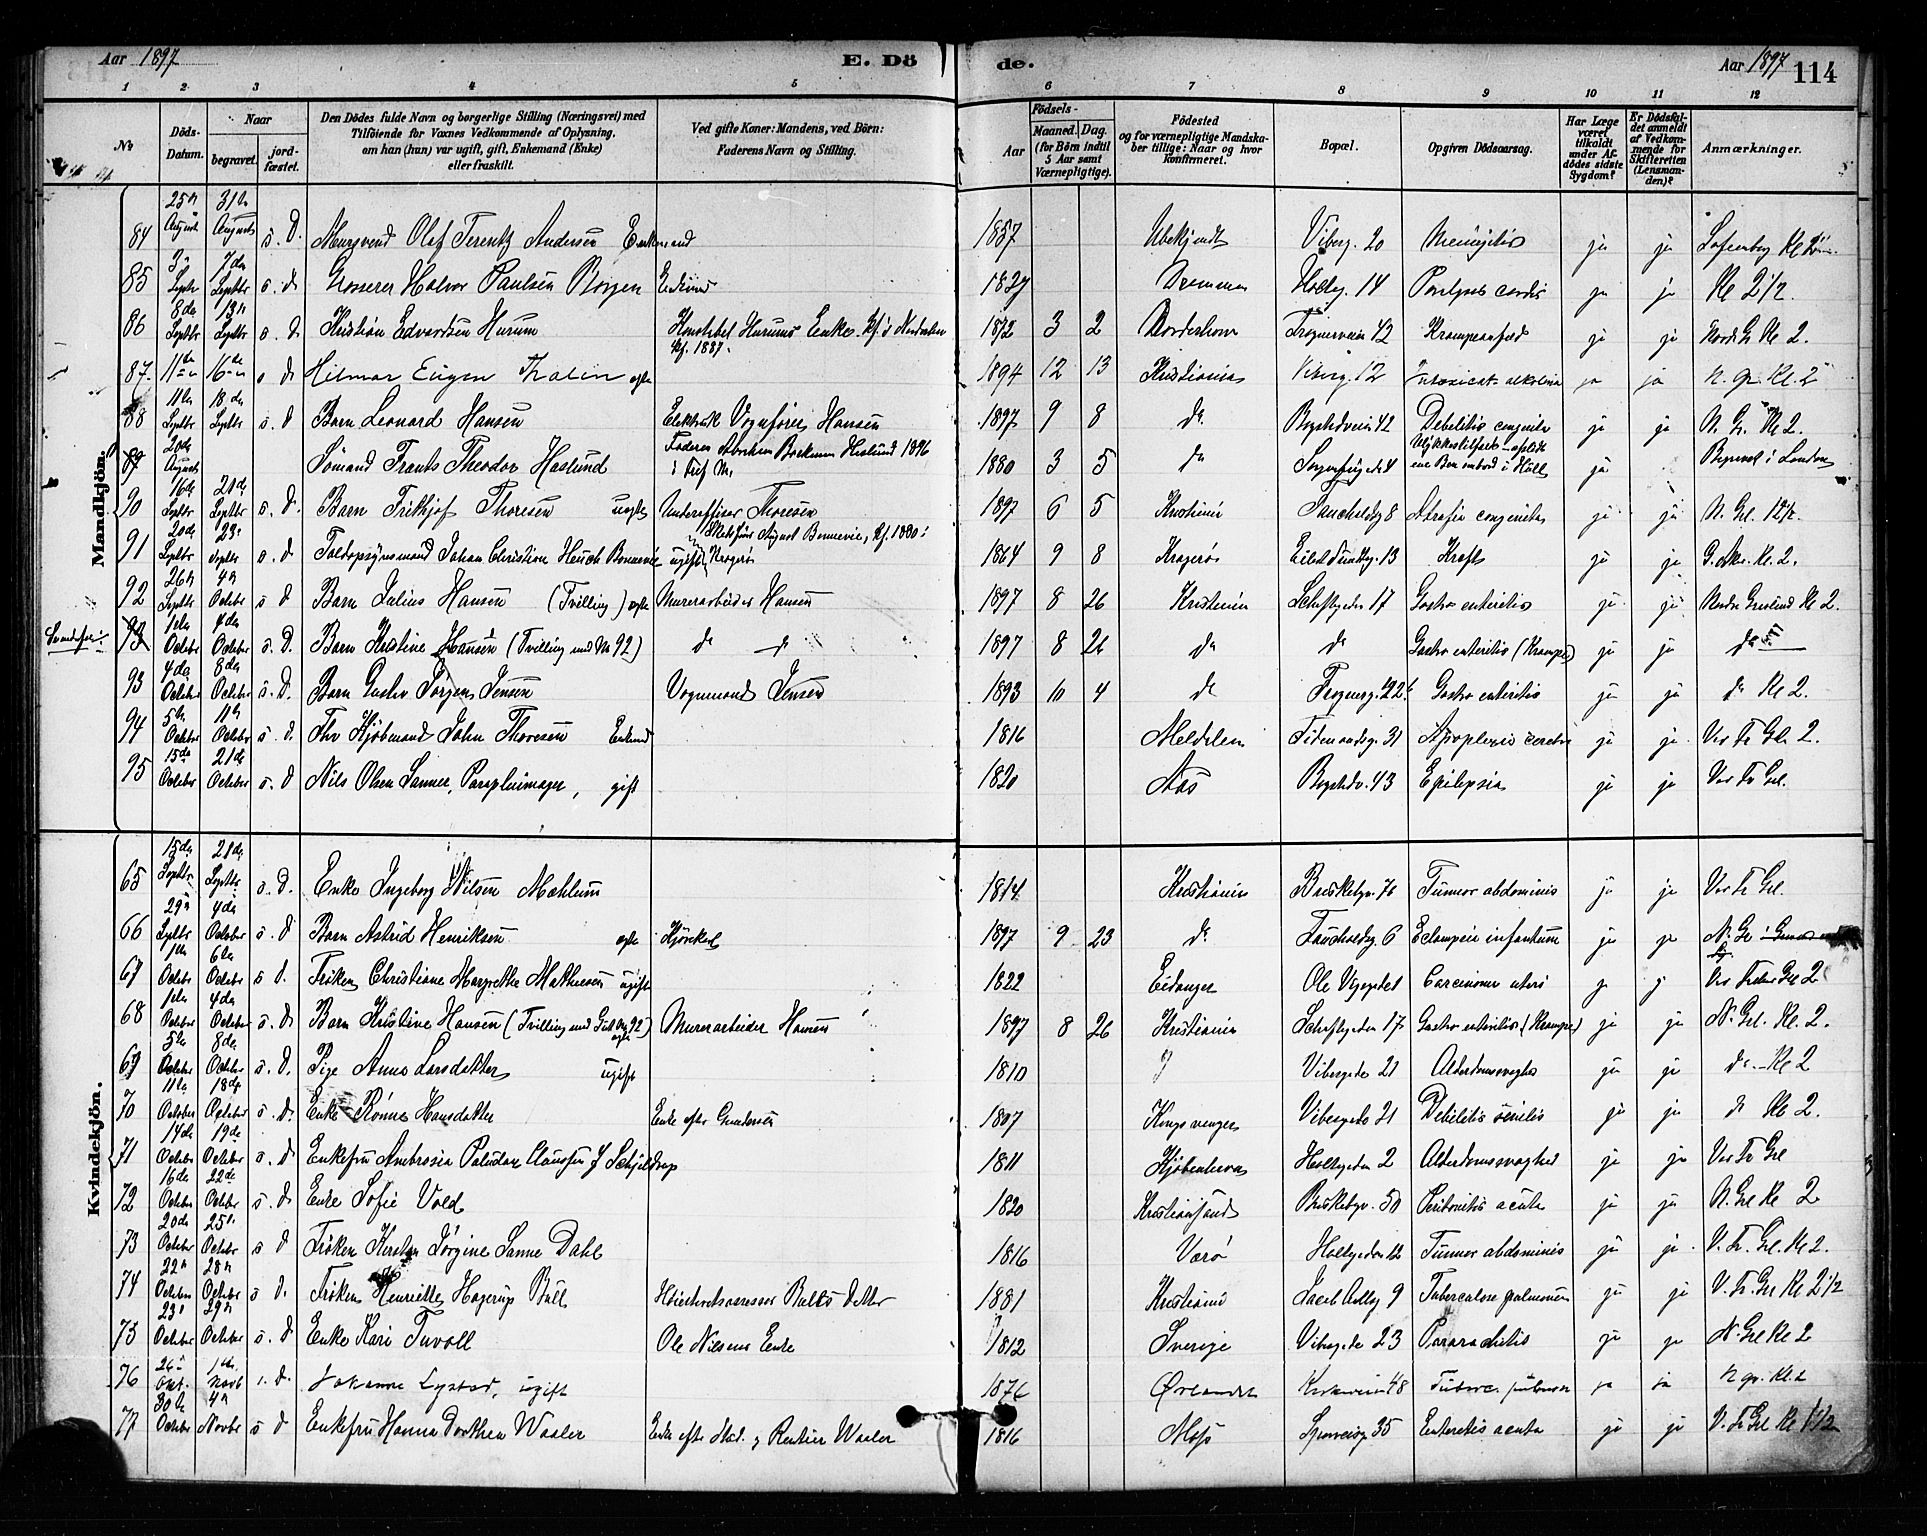 Aar 1897
E. Dö
de.
Aar 1897
114
1 2 3 4 5 6 7 8 9 10 11 12
No
Döds-Datum.
Naar
begravet.
jord-fæstet.
Den Dödes fulde Navn og borgerlige Stilling (Næringsvei) med
Tilföiende for Voxnes Vedkommende af Oplysning,
om han (hun) var ugift, gift, Enkemand (Enke)
eller fraskilt.
Ved gifte Koner: Mandens, ved Börn:
Faderens Navn og Stilling.
Födsels-
Aar
Maaned.
Dag.
(for Börn indtil
5 Aar samt
Værnepligtige).
Födested
og for værnepligtige Mandska-
ber tillige: Naar og hvor
Konfirmeret.
Bopæl.
Opgiven Dödsaarsag.
Har Læge
været
tilkaldt
under Af-
dödes sidste
Sygdom?
Er Dödsfal-
det anmeldt
af Vedkom-
mende for
Skifteretten
(Lensman-
den)?
Anmærkninger.
Mandkjön.
84 25 August 31 August s. D. Olaf Terentz Andersen Enkemand 1857 Ubekjendt Viberg. 20 Meningitis ja ja
85 3 Septbr 7de Septbr s. d Grosserer Halvor Paulsen Enkemand 1827 Drammen Holbg. 14 Paralysis cordis ja ja Kl 2 1/2.
86 8de Septbr 13 Septbr s. D Kristian Edvardsen Hurum Konstabel Hurums Enke. Kf. 1887. 1872 3 2 Norderhov Frognerveien 42 Krampeanfald ja ja Nordr Gr Kl 2.
87. 11te 16de s d Hilmar Eugen Thalin ægte 1894 12 13 Kristiania Viberg. 12 Intoxicat. alkoholica ja ja N. gr. Kl. 2
88 11te Septbr 18de Septbr s. d Barn Leonard Hansen Elektrisk Vognfører Hansen 1897 9 8 do Bogstadveien 42 Debilitas congenita ja ja N. Gr. Kl 2.
89 20de August Sömand Frants Theodor Haslund 1880 3 5 do Sorgenfrigaden 4 ja Begravet i London
90 16de Septbr 21de Septbr s. D. Barn Fridtjof Thoresen ægte Underofficer Thoresen 1897 6 5 Kristiania Fauchaldsg 8 Atrofia congenita ja ja N. Gr. 12 1/2.
91 20de Septbr 23 Septbr s. d Toldopsynsmand Johan Christian Heuch Bonnevie ugift Skibsfører August Bonnevie, Kf. 1880 i Kragerø 1864 9 8 Kragerø Eilert Sundtsg. 13 Kræft ja ja Kl. 2.
92 26 Septbr 4 Octobr s d Barn Julius Hansen (Tvilling) ægte Murerarbeider Hansen 1897 8 26 Kristiania Schultzgaden 17 Gastro enteritis ja ja Nordre Gravlund Kl 2.
93 1ste October 4de October s. D. Barn Kristine Hansen (Tvilling med No 92) do do 1897 8 26 do do Gastro enteritis (Krampe) ja ja do
93 4de October 8de October s. D. Barn Gustav Jörgen Jensen Vognmand Jensen 1893 10 4 do Frognerg. 22 Gastro enteritis ja ja do Kl 2.
94 5te October 11te October s. d. Fhv Kjöbmand John Thoresen Enkemd 1816 Meldalen Tidemandsg. 31 Apoplexia cerebri ja ja Vor Fr Grl 2.
95 15de October 21de October s. d Nils Olsen Sanner, Paraplumager, gift 1820 Aas Bogstdv. 43 Epilepsia ja ja Vor Fr Grl.
Kvindekjön.
65 15de Septbr 21de Septbr s. D. Enke Ingeborg Nilsen Mæhlum 1814 Kristiania Briskebyv 76 Tumor abdominis ja ja Vor Fr Grl.
66 29 Septbr 4de October s. d Barn Astrid Henriksen ægte 1897 9 23 do Fauchaldsg. 6 Eclampsia infantum ja ja N. Gr
67 1ste October 6te October s d. Fröken Christiane Margrethe Mathiesen ugift 1822 Eidanger Ole Vigsgd 1 Carcinoma uteri ja j Vor Frelser Grl 2
68 1ste October 4de October s. D Barn Kristine Hansen (Tvilling med Gut No 92) ægte Murerarbeider Hansen 1897 8 26 Kristiania Schultzgaden 17 Gastro enteritis (Krampe) ja ja N. Grl. Kl. 2.
69 5te October 8de October s. D. Pige Anne Larsdatter ugift 1810 Vibesgade 21 Alderdomssvaghed ja ja do Kl 2
70 11te October 18de October s. d. Enke Rönne Hansdatter Enke efter Gundersen 1807 Kongsvinger Vibesgade 21 Debilitas senilis ja ja do Kl 2.
71 14de October 19de October s. d Enkefru Ambrosia Paludan Claussen f Schjeldrup 1811 Kjöbenhavn Holbgaden 2 Alderdomssvaghed ja ja Vor Fr Grl
72 16de October 22de October s. d Enke Sofie Vold 1820 Kristianssund Briskebyv. 50 Peritonitis acuta ja ja N. Grl Kl 2
73 20de October 25 October s d Fröken Kirsten Jörgine Sanne Dahl 1816 Værö Holbgaden 12 Tumor abdominis ja ja. V. Fr. Grl. Kl 2.
74 22 October 28 October s D. Fröken Henriette Hagerup Bull Höiesteretsassessor Bulls datter 1881 Kristiania Jacob Aallsg 9 Tuberculose pulmonum ja ja V. Fr. Grl Kl 2 1/2
75 23 October 29 October s. D Enke Kari Tuvoll Ole Nilsens Enke 1812 Sverige Vibesgade 23 ja ja N. Grl Kl 2
76 26 Okt. 1ste Novb s. D. Johanne Lystad, ugift 1876 Kirkeveien 48 Tuberc. pulmon ja ja N gr. Kl. 2
77 30te October 4 Novbr s d Enkefru Hanna Dorthea Waaler Enke efter Rentier Waaler 1816 Moss Sporveisg. 35 Enteritis acuta ja ja V. Fr Grl Kl 1 1/2